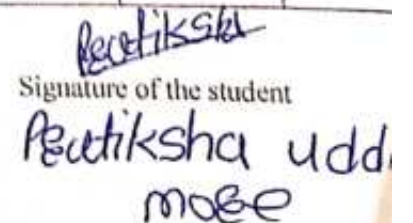 Pratiksha
Signature of the student
Pratiksha udd
more